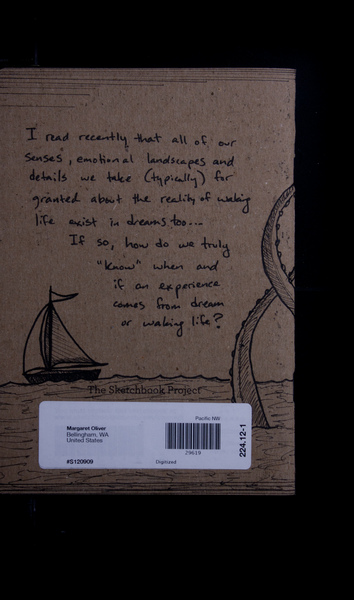 I read recently that all of our
senses, emotional landscapes and
details we take (typically) for
granted about the reality of waking
life exist in dreams too...
If so, how do we truly
"know" when and
if an experience
comes from dream
or waking life?
The Sketchbook Project
Pacific NW
Margaret Oliver
Bellingham, WA
United States
29619
224.12-1
#S120909
Digitized